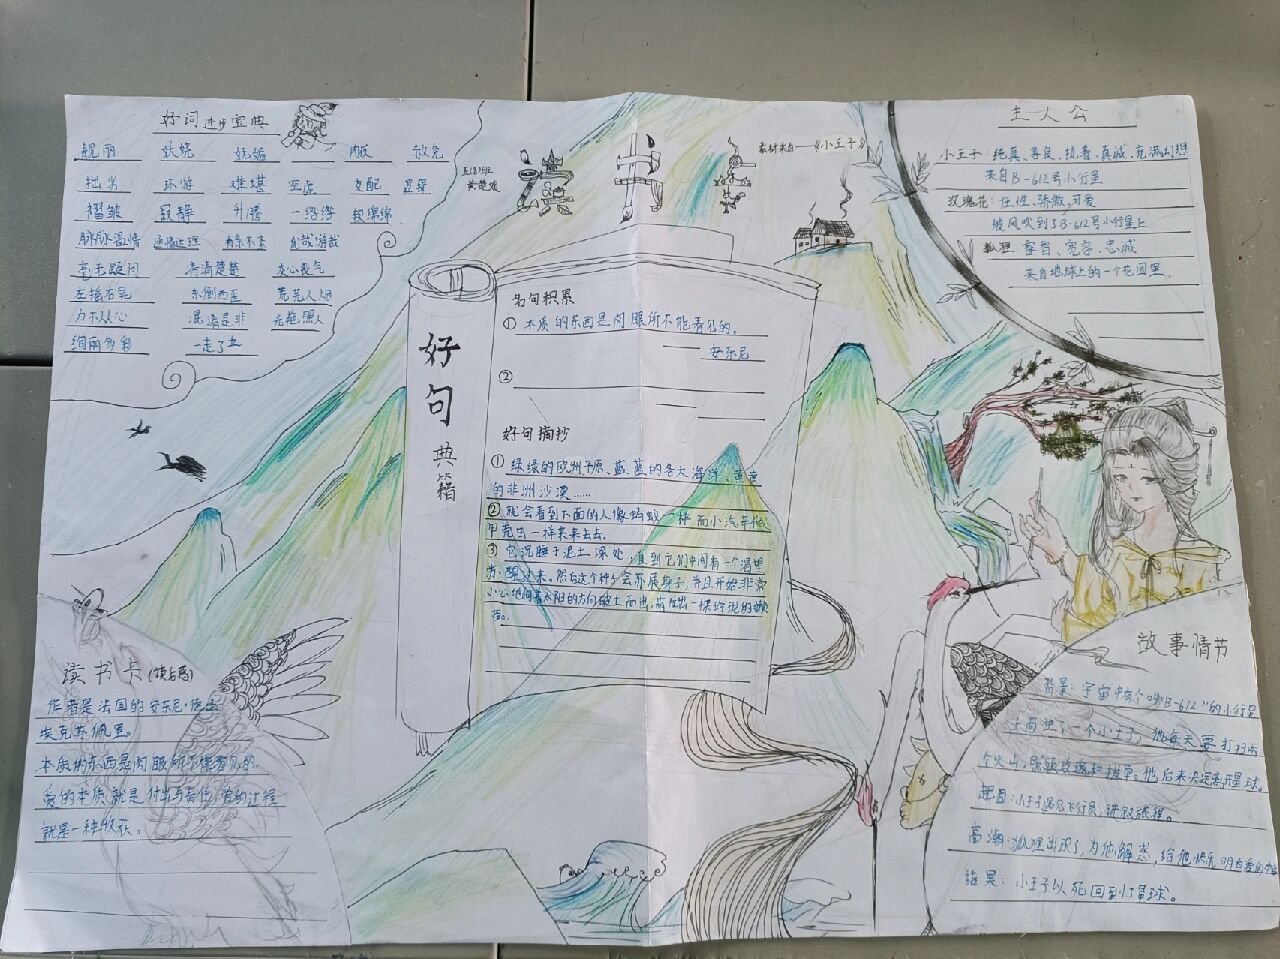 好词进步宝典
靓丽 妖娆 妩媚 赦免
拙劣 环游 难堪 支配
褶皱 寂静 升腾 一绺绺 软绵绵
脉脉温情 通情达理
毫无疑问 清清楚楚 灰心丧气
左摇右晃 东倒西歪 荒无人烟
力不从心 混淆是非 光艳照人
绚丽多彩 一走了之
素材来自——《小王子》
主人公
小王子：纯真、善良、执着、真诚、充满幻想
来自B-612号小行星
玫瑰花：任性、骄傲、可爱
被风吹到了B-612号小行星上
狐狸：睿智、宽容、忠诚
来自地球上的一个花园里、
好句典籍
名句积累
① 本质的东西是肉眼所不能看见的。
——安东尼
②
好句摘抄
① 绿绿的欧洲平原、蓝蓝的各大海洋、黄黄
的非洲沙漠……
② 就会看到下面的人像蚂蚁一样而小汽车像
甲壳虫一样来来去去。
③ 它沉睡于泥土深处，直到它们中间有一个渴望
苏醒过来。然后这个种子会舒展身子，并且开始非常
小心地向着太阳的方向破土而出，
读书卡(读后感)
作者是法国的安东尼·德·圣
埃克苏佩里。
本质的东西是肉眼所不能看见的。
爱的本质就是付出与责任，爱的过程
就是一种收获。
故事情节
背景：宇宙中有个叫"B-612"的小行星
上面住了一个小王子，他每天要打扫两
个火山，照顾玫瑰和拔草。他后来决定离开星球。
起因：小王子遇见飞行员，讲叙旅程。
高潮：狐狸出现了，为他解惑，给他快乐，明白爱的
结果：小王子以死回到小星球。